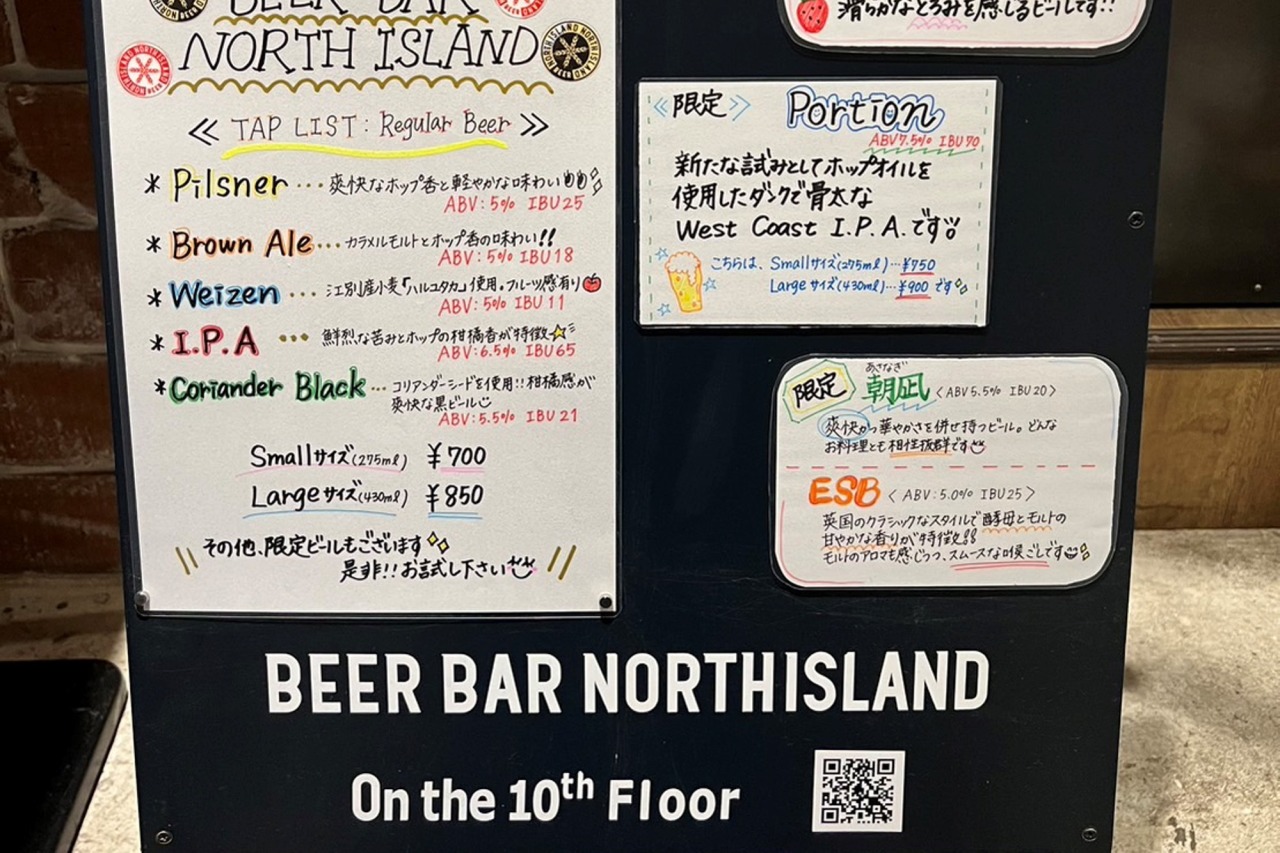 BEER BAR
NORTH ISLAND
≪ TAP LIST: Regular Beer ≫
* Pilsner … 爽快なホップ香と軽やかな味わい
ABV: 5% IBU25
* Brown Ale … カラメルモルトとホップ香の味わい!!
ABV: 5% IBU18
* Weizen … 江別産小麦「ハルユタカ」使用。フルーツ感有り
ABV: 5% IBU11
* I.P.A … 鮮烈な苦みとホップの柑橘香が特徴
ABV: 6.5% IBU65
* Coriander Black … コリアンダーシードを使用!!柑橘感が
爽快な黒ビール
ABV: 5.5% IBU 21
Smallサイズ(275ml) ¥700
Largeサイズ(430ml) ¥850
その他、限定ビールもございます
是非!!お試し下さい
滑らかなとろみを感じるビールです!!
≪限定≫ Portion
ABV7.5% IBU70
新たな試みとしてホップオイルを
使用したダンクで骨太な
West Coast I.P.A.です!!
こちらは、Smallサイズ(275ml)…¥750
Largeサイズ(430ml)…¥900 です
あさなぎ
限定 朝凪 <ABV 5.5% IBU20>
爽快かつ華やかさを併せ持つビール。どんな
お料理とも相性抜群です
ESB < ABV: 5.0% IBU25 >
英国のクラシックなスタイルで酵母とモルトの
甘やかな香りが特徴!!
モルトのアロマも感じつつ、スムースな喉ごしです
BEER BAR NORTHISLAND
On the 10th Floor